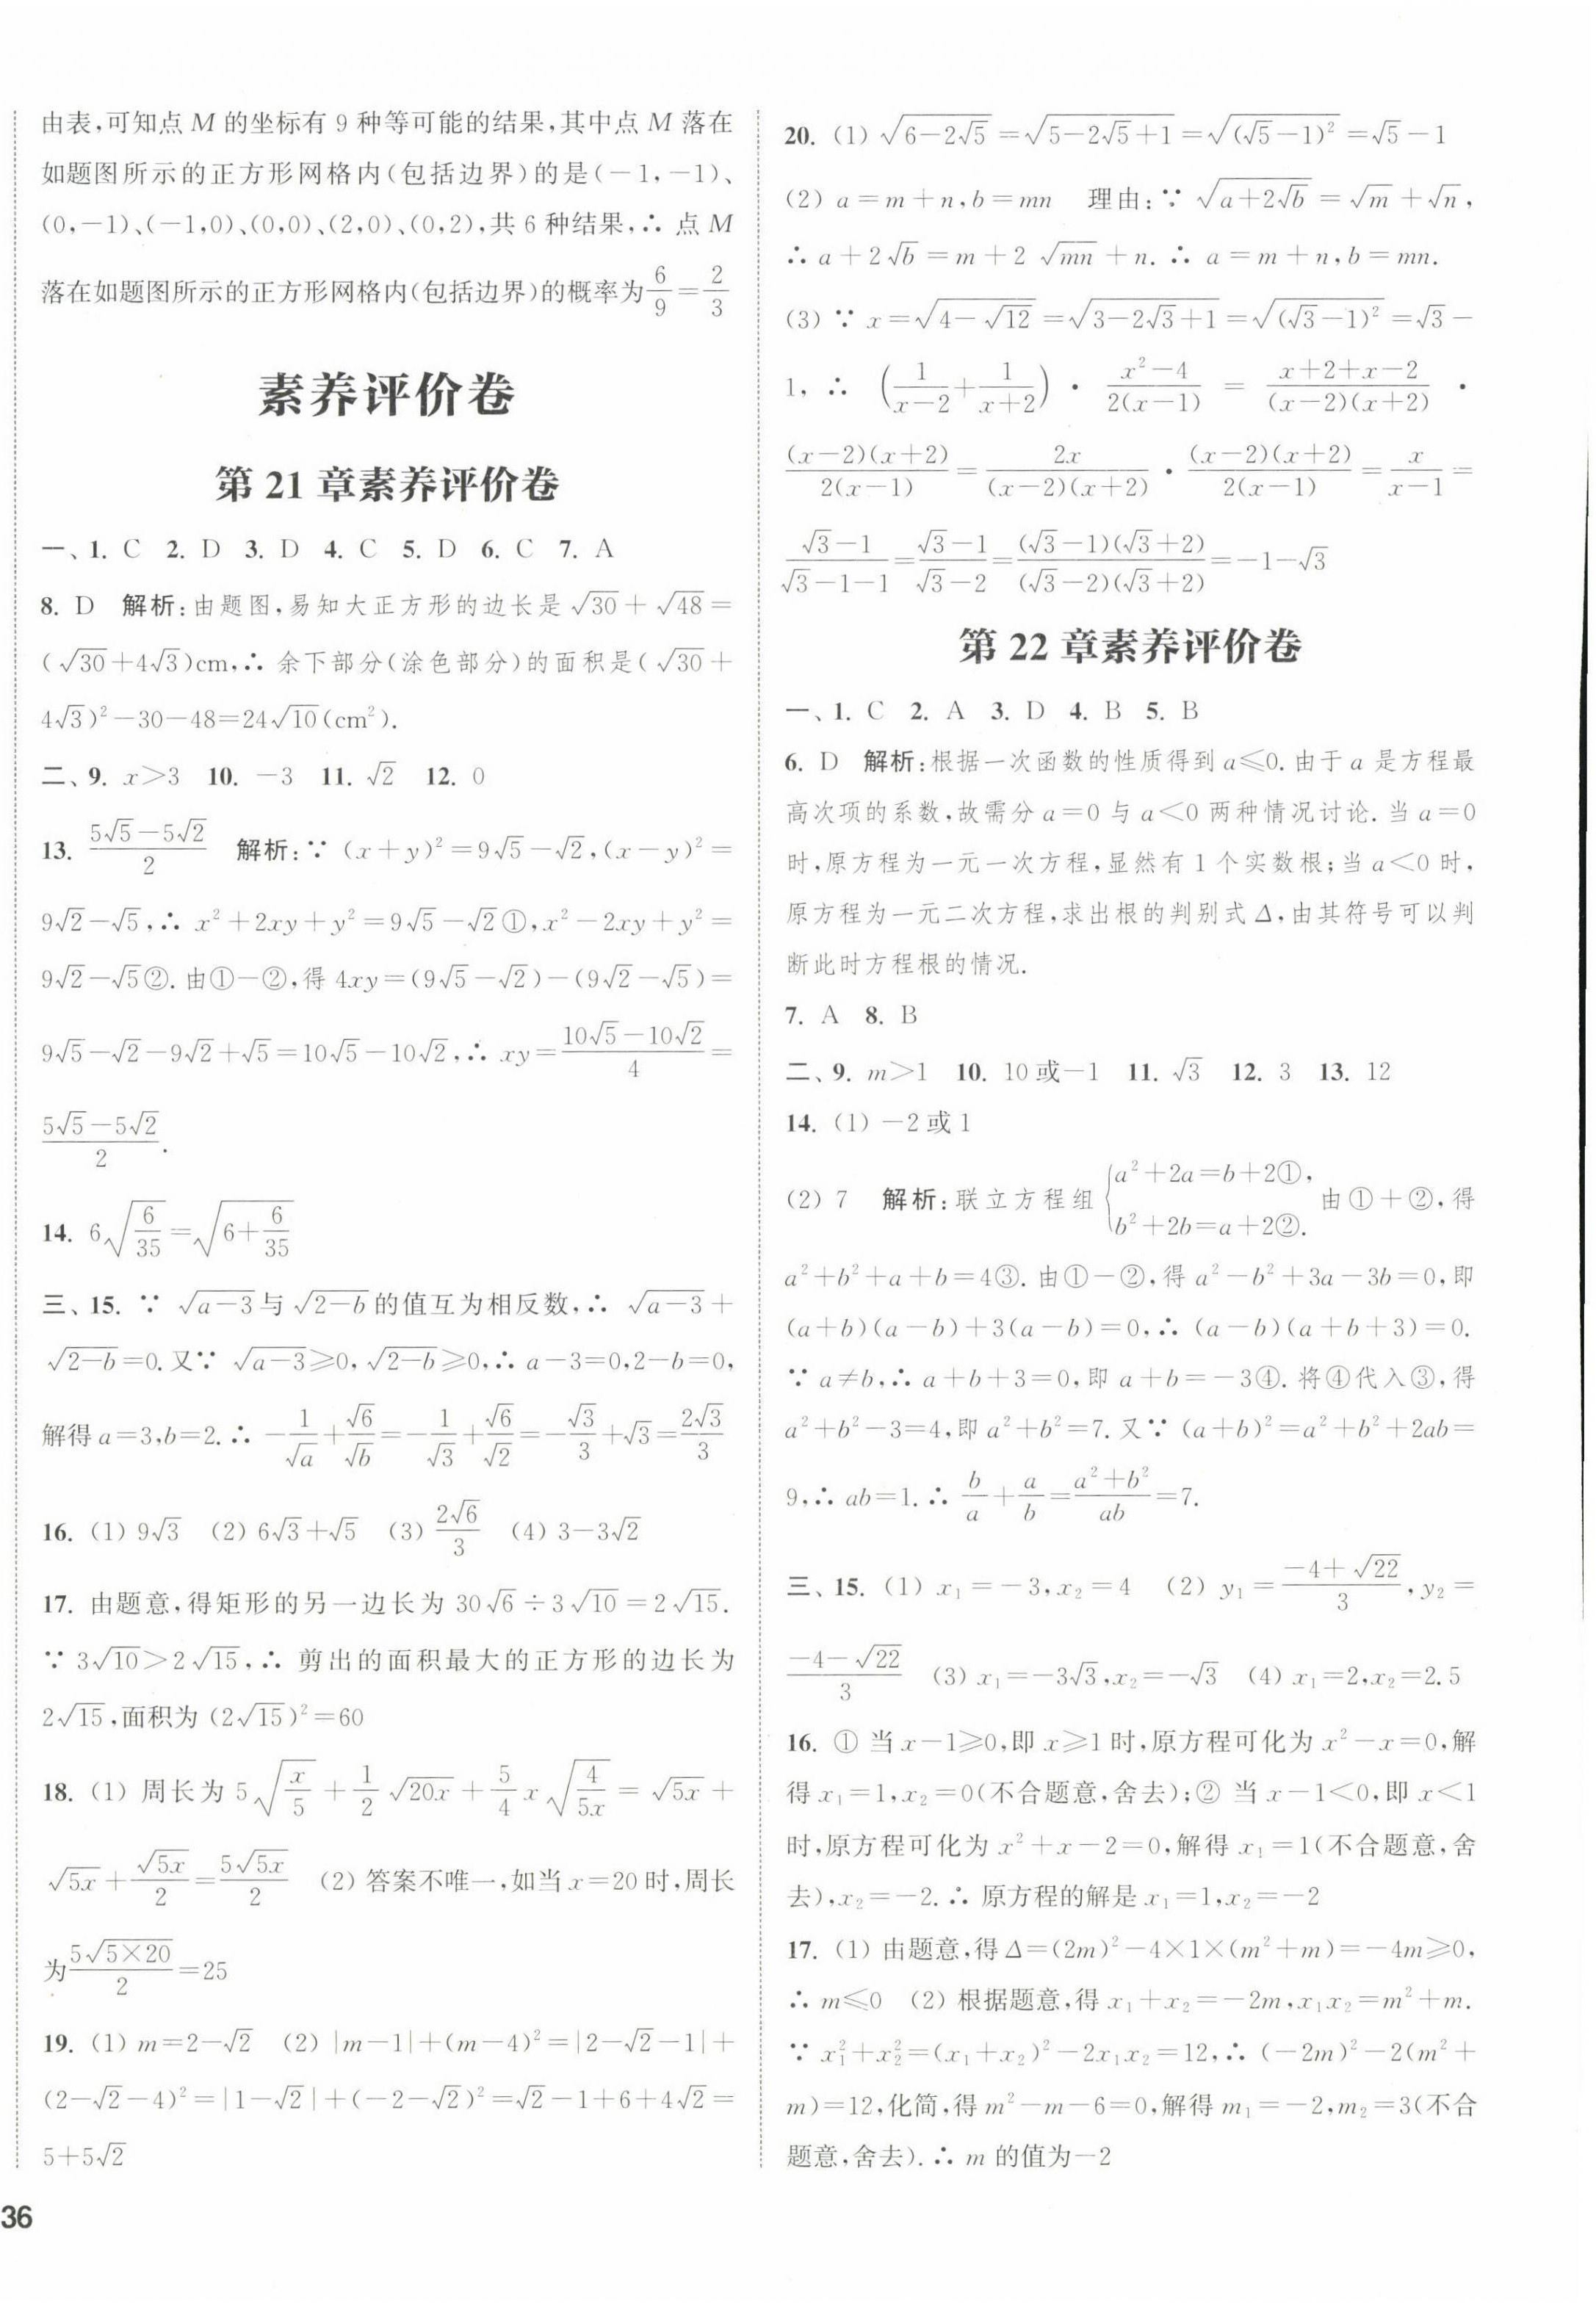 由表,可知点 M 的坐标有 9 种等可能的结果,其中点 M 落在
如题图所示的正方形网格内(包括边界)的是(-1,-1)、
(0,-1)、(-1,0)、(0,0)、(2,0)、(0,2),共 6 种结果,∴ 点 M
落在如题图所示的正方形网格内(包括边界)的概率为6/9=2/3
素养评价卷
第 21 章素养评价卷
一、1. C 2. D 3. D 4. C 5. D 6. C 7. A
8. D 解析:由题图,易知大正方形的边长是 √30 + √48 =
(√30+4√3)cm,∴ 余下部分(涂色部分)的面积是(√30+
4√3)²-30-48=24√10(cm²).
二、9. x>3 10. -3 11. √2 12. 0
13. (5√5-5√2)/2 解析:∵ (x+y)²=9√5-√2,(x-y)²=
9√2-√5,∴ x²+2xy+y²=9√5-√2①,x²-2xy+y²=
9√2-√5②. 由①-②,得 4xy=(9√5-√2)-(9√2-√5)=
9√5-√2-9√2+√5=10√5-10√2,∴ xy=(10√5-10√2)/4=
(5√5-5√2)/2.
14. 6√(6/35)=√(6+6/35)
三、15. ∵ √(a-3)与 √(2-b)的值互为相反数,∴ √(a-3)+
√(2-b)=0. 又∵ √(a-3)≥0,√(2-b)≥0,∴ a-3=0,2-b=0,
解得 a=3,b=2. ∴ -1/√a+√6/√b=-1/√3+√6/√2=-√3/3+√3=2√3/3
16. (1) 9√3 (2) 6√3+√5 (3) 2√6/3 (4) 3-3√2
17. 由题意,得矩形的另一边长为 30√6÷3√10=2√15.
∵ 3√10>2√15,∴ 剪出的面积最大的正方形的边长为
2√15,面积为 (2√15)²=60
18. (1) 周长为 5√(x/5)+1/2√(20x)+5/4x√(4/5x)=√(5x)+
√(5x)+√(5x)/2=5√(5x)/2 (2) 答案不唯一,如当 x=20 时,周长
为5√(5×20)/2=25
19. (1) m=2-√2 (2) |m-1|+(m-4)²=|2-√2-1|+
(2-√2-4)²=|1-√2|+(-2-√2)²=√2-1+6+4√2=
5+5√2
36
20. (1) √(6-2√5)=√(5-2√5+1)=√((√5-1)²)=√5-1
(2) a=m+n,b=mn 理由:∵ √(a+2√b)=√m+√n,
∴ a+2√b=m+2√(mn)+n. ∴ a=m+n,b=mn.
(3) ∵ x=√(4-√12)=√(3-2√3+1)=√((√3-1)²)=√3-
1, ∴ (1/(x-2)+1/(x+2))·(x²-4)/(2(x-1))=(x+2+x-2)/((x-2)(x+2))·
((x-2)(x+2))/(2(x-1))=2x/((x-2)(x+2))·((x-2)(x+2))/(2(x-1))=x/(x-1)=
(√3-1)/(√3-1-1)=(√3-1)/(√3-2)=((√3-1)(√3+2))/((√3-2)(√3+2))=-1-√3
第 22 章素养评价卷
一、1. C 2. A 3. D 4. B 5. B
6. D 解析:根据一次函数的性质得到 a≤0. 由于 a 是方程最
高次项的系数,故需分 a=0 与 a<0 两种情况讨论. 当 a=0
时,原方程为一元一次方程,显然有 1 个实数根;当 a<0 时,
原方程为一元二次方程,求出根的判别式 Δ,由其符号可以判
断此时方程根的情况.
7. A 8. B
二、9. m>1 10. 10 或-1 11. √3 12. 3 13. 12
14. (1) -2 或 1
(2) 7 解析:联立方程组 {a²+2a=b+2①, b²+2b=a+2②. 由①+②,得
a²+b²+a+b=4③. 由①-②,得 a²-b²+3a-3b=0,即
(a+b)(a-b)+3(a-b)=0,∴ (a-b)(a+b+3)=0.
∵ a≠b,∴ a+b+3=0,即 a+b=-3④. 将④代入③,得
a²+b²-3=4,即 a²+b²=7. 又∵ (a+b)²=a²+b²+2ab=
9,∴ ab=1. ∴ b/a+a/b=(a²+b²)/ab=7.
三、15. (1) x₁=-3,x₂=4 (2) y₁=(-4+√22)/3,y₂=
(-4-√22)/3 (3) x₁=-3√3,x₂=-√3 (4) x₁=2,x₂=2.5
16. ① 当 x-1≥0,即 x≥1 时,原方程可化为 x²-x=0,解
得 x₁=1,x₂=0(不合题意,舍去);② 当 x-1<0,即 x<1
时,原方程可化为 x²+x-2=0,解得 x₁=1(不合题意,舍
去),x₂=-2. ∴ 原方程的解是 x₁=1,x₂=-2
17. (1) 由题意,得 Δ=(2m)²-4×1×(m²+m)=-4m≥0,
∴ m≤0 (2) 根据题意,得 x₁+x₂=-2m,x₁x₂=m²+m.
∵ x₁²+x₂²=(x₁+x₂)²-2x₁x₂=12,∴ (-2m)²-2(m²+
m)=12,化简,得 m²-m-6=0,解得 m₁=-2,m₂=3(不合
题意,舍去). ∴ m 的值为-2